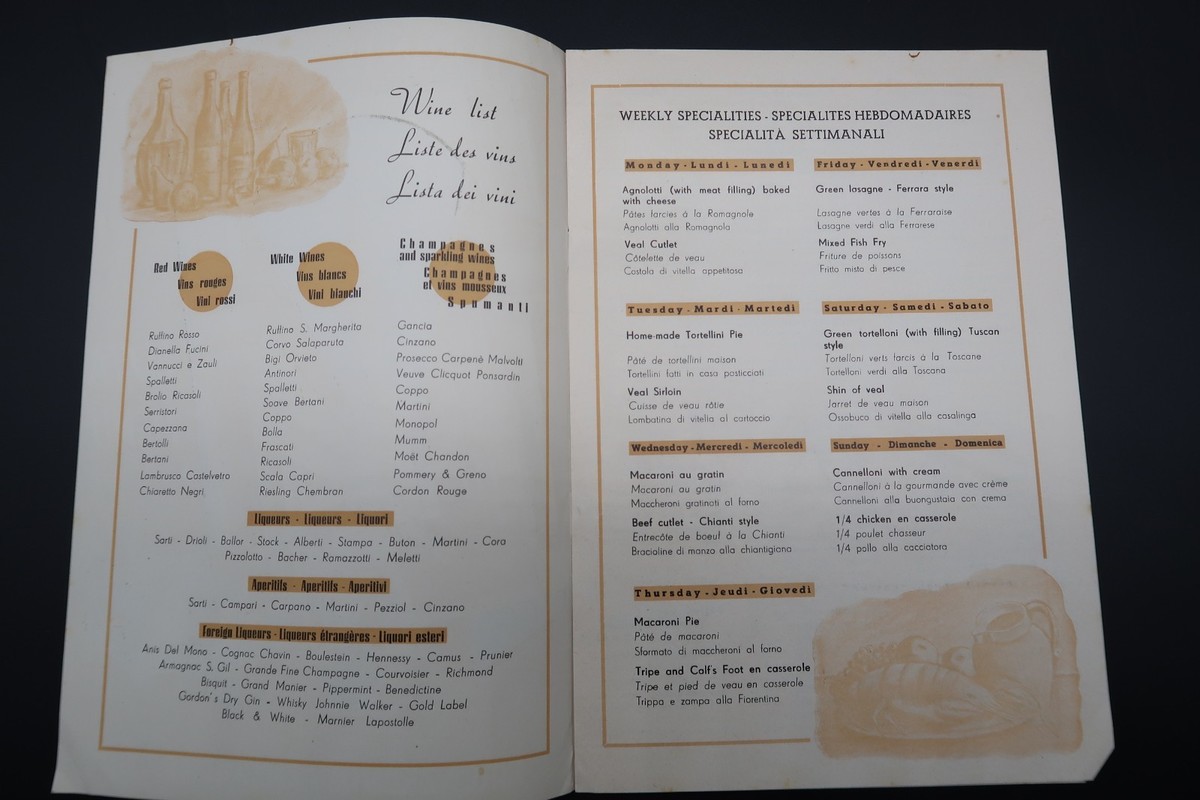 Wine list
Liste des vins
Lista dei vini
Red Wines
Vins rouges
Vini rossi
Ruffino Rosso
Dianella Fucini
Vannucci e Zauli
Spalletti
Brolio Ricasoli
Serristori
Capezzana
Bertolli
Bertani
Lambrusco Castelvetro
Chiaretto Negri
White Wines
Vins blancs
Vini bianchi
Ruffino S. Margherita
Corvo Salaparuta
Bigi Orvieto
Antinori
Spalletti
Soave Bertani
Coppo
Bolla
Frascati
Ricasoli
Scala Capri
Riesling Chembran
Champagnes
and sparkling wines
Champagnes
et vins mousseux
Spumanti
Gancia
Cinzano
Prosecco Carpenè Malvolti
Veuve Clicquot Ponsardin
Coppo
Martini
Monopol
Mumm
Moët Chandon
Pommery & Greno
Cordon Rouge
Liqueurs - Liqueurs - Liquori
Sarti - Drioli - Bollor - Stock - Alberti - Stampa - Buton - Martini - Cora
Pizzolotto - Bacher - Ramazzotti - Meletti
Aperitifs - Aperitifs - Aperitivi
Sarti - Campari - Carpano - Martini - Pezziol - Cinzano
Foreign Liqueurs - Liqueurs étrangères - Liquori esteri
Anis Del Mono - Cognac Chavin - Boulestein - Hennessy - Camus - Prunier
Armagnac S. Gil - Grande Fine Champagne - Courvoisier - Richmond
Bisquit - Grand Manier - Pippermint - Benedictine
Gordon's Dry Gin - Whisky Johnnie Walker - Gold Label
Black & White - Marnier Lapostolle
WEEKLY SPECIALITIES - SPECIALITES HEBDOMADAIRES
SPECIALITÀ SETTIMANALI
Monday - Lundi - Lunedi
Agnolotti (with meat filling) baked
with cheese
Pâtes farcies à la Romagnole
Agnolotti alla Romagnola
Veal Cutlet
Côtelette de veau
Costola di vitella appetitosa
Tuesday - Mardi - Martedi
Home-made Tortellini Pie
Pâté de tortellini maison
Tortellini fatti in casa pasticciati
Veal Sirloin
Cuisse de veau rôtie
Lombatina di vitella al cartoccio
Wednesday - Mercredi - Mercoledi
Macaroni au gratin
Macaroni au gratin
Maccheroni gratinati al forno
Beef cutlet - Chianti style
Entrecôte de boeuf à la Chianti
Braciolina di manzo alla chiantigiana
Thursday - Jeudi - Giovedi
Macaroni Pie
Pâté de macaroni
Sformato di maccheroni al forno
Tripe and Calf's Foot en casserole
Tripe et pied de veau en casserole
Trippa e zampa alla Fiorentina
Friday - Vendredi - Venerdi
Green lasagne - Ferrara style
Lasagne vertes à la Ferraraise
Lasagne verdi alla Ferrarese
Mixed Fish Fry
Friture de poissons
Fritto misto di pesce
Saturday - Samedi - Sabato
Green tortelloni (with filling) Tuscan
style
Tortelloni verts farcis à la Toscane
Tortelloni verdi alla Toscana
Shin of veal
Jarret de veau maison
Ossobuco di vitella alla casalinga
Sunday - Dimanche - Domenica
Cannelloni with cream
Cannelloni à la gourmande avec crème
Cannelloni alla buongustaia con crema
1/4 chicken en casserole
1/4 poulet chasseur
1/4 pollo alla cacciatora